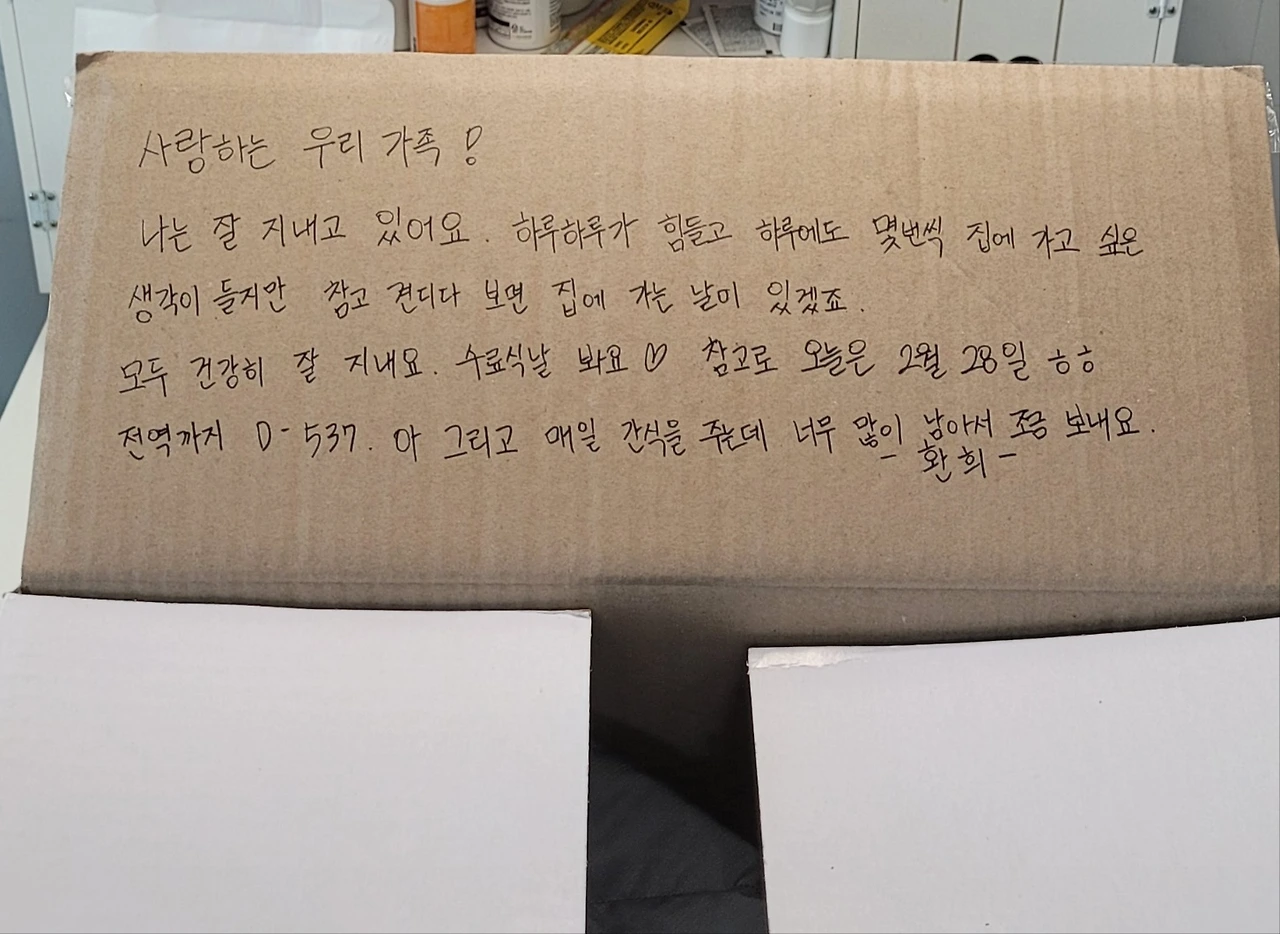 사랑하는 우리 가족!
나는 잘 지내고 있어요. 하루하루가 힘들고 하루에도 몇번씩 집에 가고 싶은
생각이 들지만 참고 견디다 보면 집에 가는 날이 있겠죠.
모두 건강히 잘 지내요. 수료식날 봐요♡ 참고로 오늘은 2월 28일 ㅎㅎ
전역까지 D-537. 아 그리고 매일 간식을 주는데 너무 많이 남아서 조금 보내요.
- 환희 -